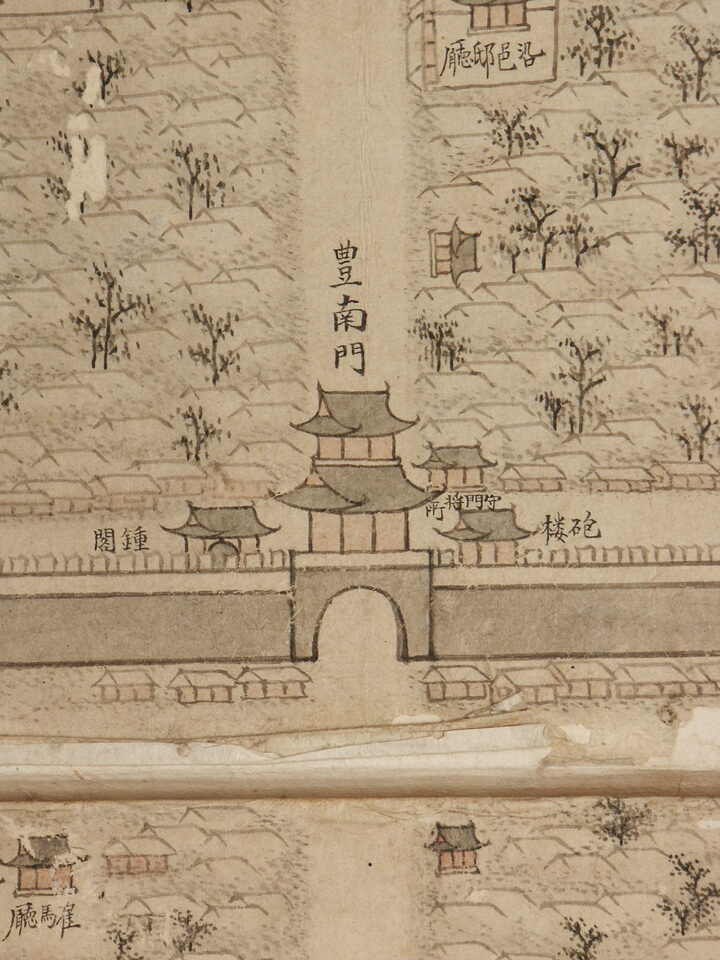 沿邑邸廳
豊南門
守門將所
砲楼
鍾閣
雇馬廳